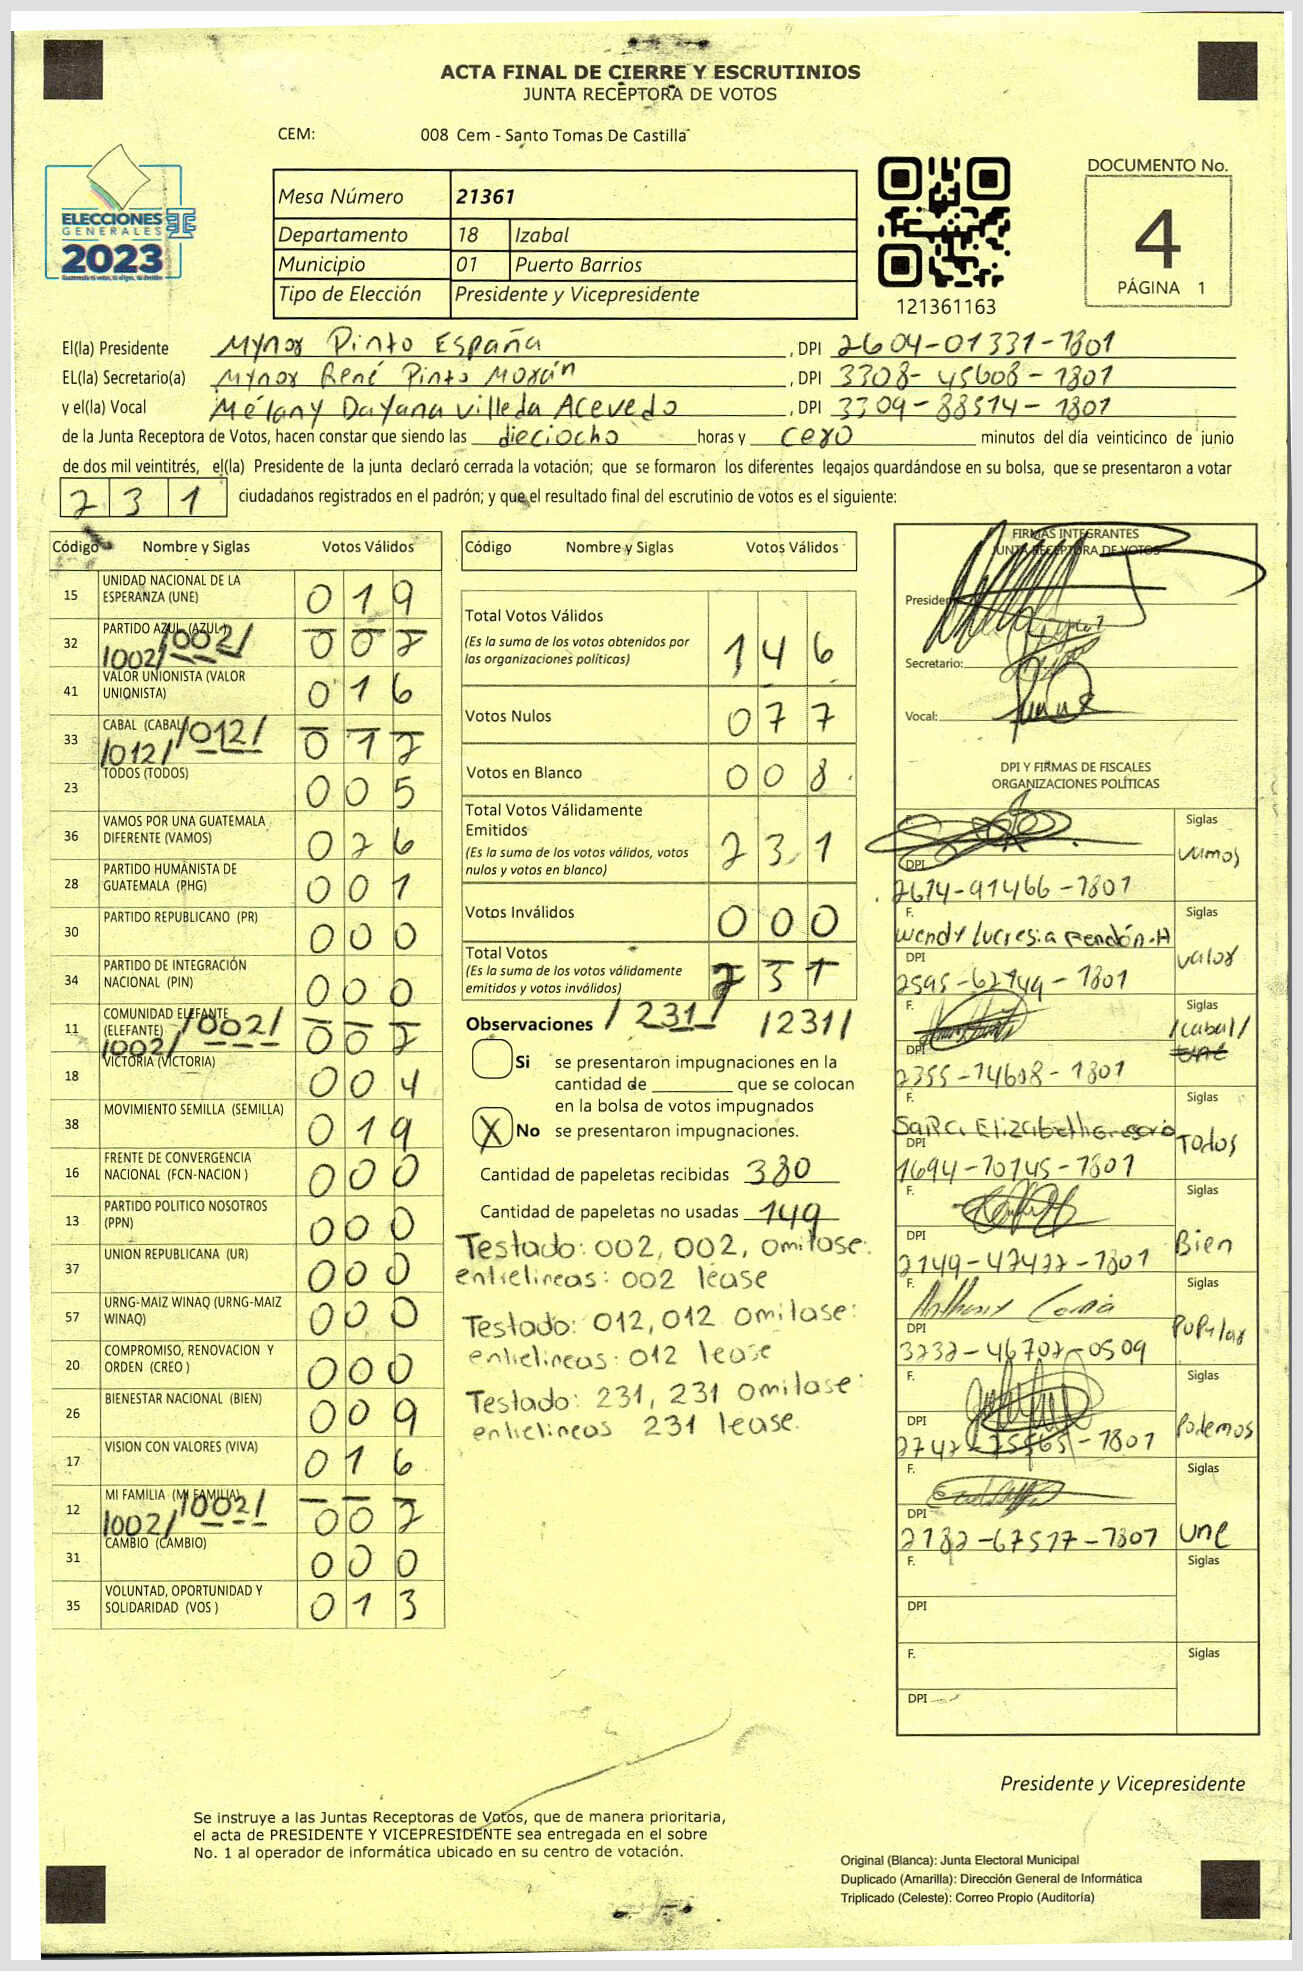 ACTA FINAL DE CIERRE Y ESCRUTINIOS
JUNTA RECEPTORA DE VOTOS
CEM: 008 Cem - Santo Tomas De Castilla
ELECCIONES
GENERALES
2023
Mesa Número 21361
Departamento 18 Izabal
Municipio 01 Puerto Barrios
Tipo de Elección Presidente y Vicepresidente
121361163
DOCUMENTO No.
4
PÁGINA 1
El(la) Presidente Mynor Pinto España , DPI 2604-01331-1801
EL(la) Secretario(a) Mynor René Pinto Morán , DPI 3308-45608-1801
y el(la) Vocal Mélany Dayana Villeda Acevedo , DPI 3309-88514-1801
de la Junta Receptora de Votos, hacen constar que siendo las dieciocho horas y cero minutos del día veinticinco de junio
de dos mil veintitrés, el(la) Presidente de la junta declaró cerrada la votación; que se formaron los diferentes legajos guardándose en su bolsa, que se presentaron a votar
231 ciudadanos registrados en el padrón; y que el resultado final del escrutinio de votos es el siguiente:
Código Nombre y Siglas Votos Válidos
15 UNIDAD NACIONAL DE LA ESPERANZA (UNE) 019
32 PARTIDO AZUL (AZUL) /002/ /002/ 002
41 VALOR UNIONISTA (VALOR UNIONISTA) 016
33 CABAL (CABAL) /012/ /012/ 012
23 TODOS (TODOS) 005
36 VAMOS POR UNA GUATEMALA DIFERENTE (VAMOS) 026
28 PARTIDO HUMANISTA DE GUATEMALA (PHG) 001
30 PARTIDO REPUBLICANO (PR) 000
34 PARTIDO DE INTEGRACIÓN NACIONAL (PIN) 000
11 COMUNIDAD ELEFANTE (ELEFANTE) /002/ /002/ 002
18 VICTORIA (VICTORIA) 004
38 MOVIMIENTO SEMILLA (SEMILLA) 019
16 FRENTE DE CONVERGENCIA NACIONAL (FCN-NACION ) 000
13 PARTIDO POLITICO NOSOTROS (PPN) 000
37 UNION REPUBLICANA (UR) 000
57 URNG-MAIZ WINAQ (URNG-MAIZ WINAQ) 000
20 COMPROMISO, RENOVACION Y ORDEN (CREO ) 000
26 BIENESTAR NACIONAL (BIEN) 009
17 VISION CON VALORES (VIVA) 016
12 MI FAMILIA (MI FAMILIA) /002/ /002/ 002
31 CAMBIO (CAMBIO) 000
35 VOLUNTAD, OPORTUNIDAD Y SOLIDARIDAD (VOS ) 013
Código Nombre y Siglas Votos Válidos
Total Votos Válidos 146
(Es la suma de los votos obtenidos por las organizaciones políticas)
Votos Nulos 077
Votos en Blanco 008
Total Votos Válidamente Emitidos 231
(Es la suma de los votos válidos, votos nulos y votos en blanco)
Votos Inválidos 000
Total Votos 231
(Es la suma de los votos válidamente emitidos y votos inválidos)
Observaciones /231/ /231/
Si se presentaron impugnaciones en la
cantidad de que se colocan
en la bolsa de votos impugnados
X No se presentaron impugnaciones.
Cantidad de papeletas recibidas 380
Cantidad de papeletas no usadas 149
Testado: 002, 002, omitase:
entrelineas: 002 lease
Testado: 012, 012 omitase:
entrelineas: 012 lease
Testado: 231, 231 omitase:
entrelineas 231 lease.
FIRMAS INTEGRANTES
JUNTA RECEPTORA DE VOTOS
Presidente:
Secretario:
Vocal:
DPI Y FIRMAS DE FISCALES
ORGANIZACIONES POLÍTICAS
F. Siglas
DPI vamos
2614-91466-1801
F. Wendy Lucresia Rendón.H Siglas
DPI valor
2595-62749-1801
F. Siglas
DPI /Cabal/ une
2355-14608-1801
F. Sara Elizabeth Siglas
DPI Todos
1694-70745-1801
F. Siglas
DPI Bien
2149-47422-1801
F. Anthony Siglas
DPI Popular
3232-46702-0509
F. Siglas
DPI Podemos
F. Siglas
DPI une
2182-67517-1801
F. Siglas
DPI
F. Siglas
DPI
Presidente y Vicepresidente
Se instruye a las Juntas Receptoras de Votos, que de manera prioritaria,
el acta de PRESIDENTE Y VICEPRESIDENTE sea entregada en el sobre
No. 1 al operador de informática ubicado en su centro de votación.
Original (Blanca): Junta Electoral Municipal
Duplicado (Amarilla): Dirección General de Informática
Triplicado (Celeste): Correo Propio (Auditoría)